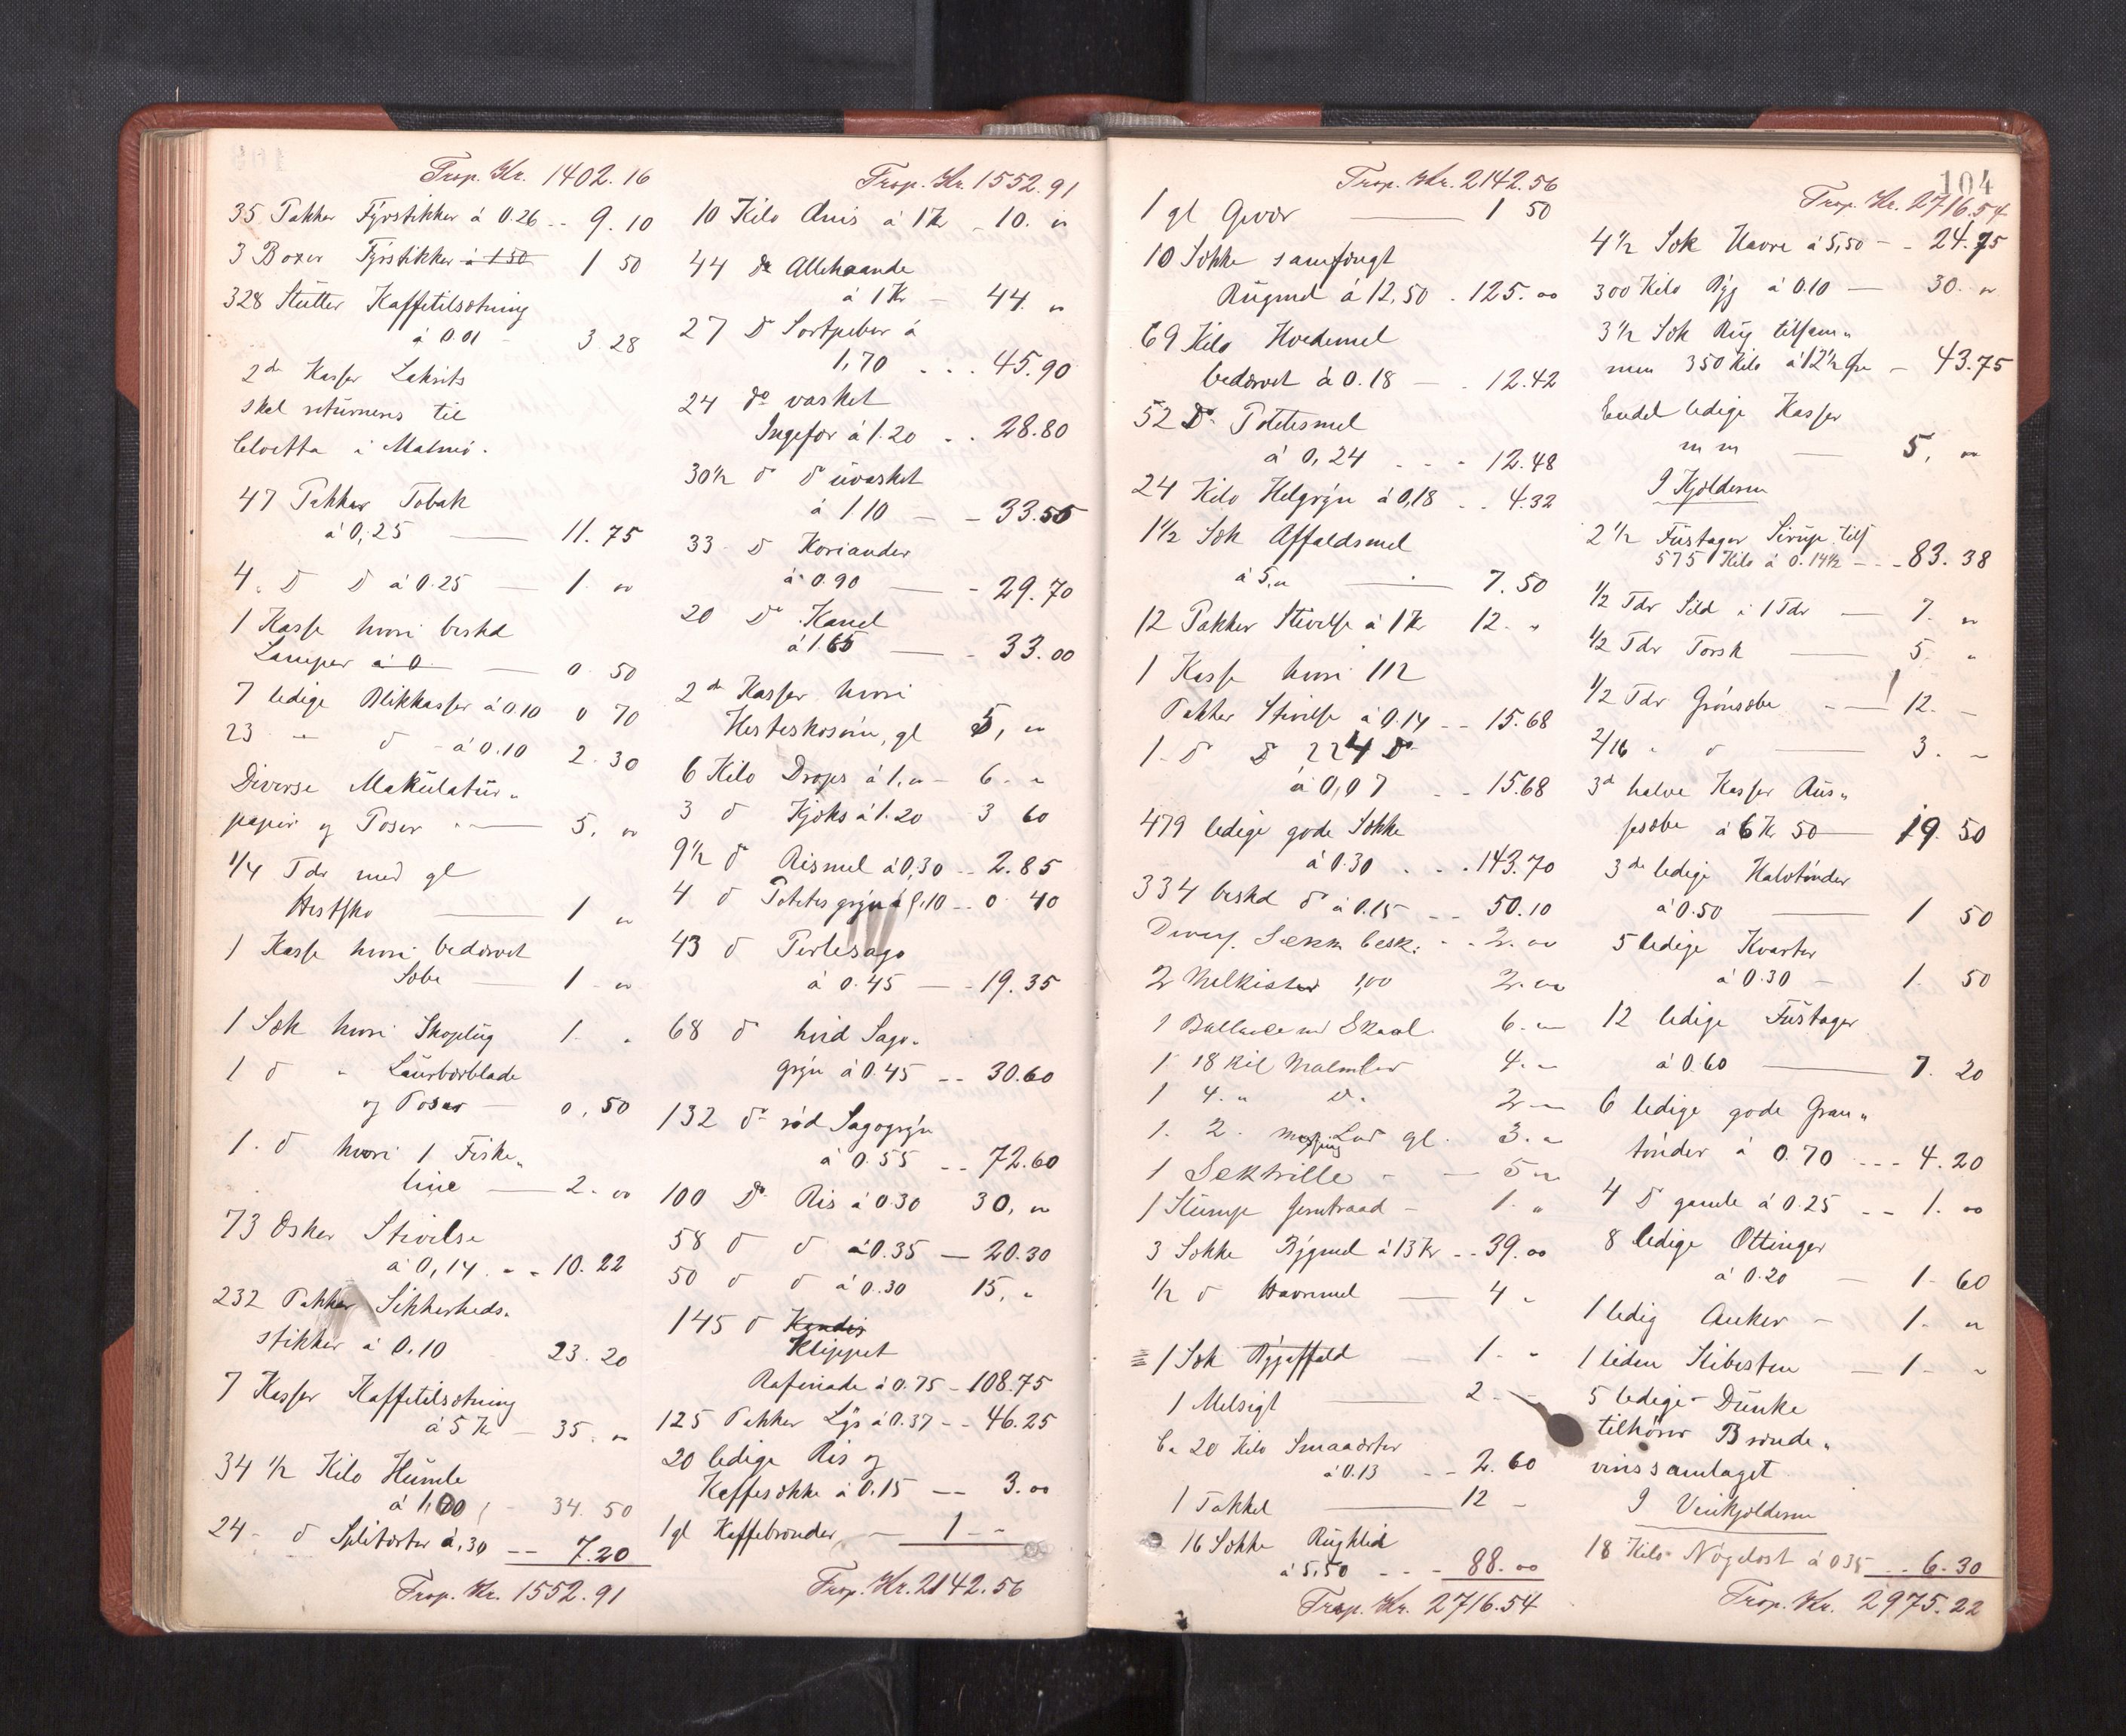 Trsp. Kr. 1402.16
35 Pakker Fyrstikker á 0.26 -- 9.10
3 Boxer Fyrstikker á 1.50 1 50
328 Stutter Kaffetilsætning
á 0.01 - 3.28
2de Kasser Lakrits
skal returneres til
Cloetta i Malmö.
47 Pakker Tobak
á 0,25 — 11.75
4 D D á 0.25 — 1. "
1 Kasse hvori beskd
Lamper á 0 — 0 50
7 ledige Blikkasser á 0.10 0 70
23 " d - á 0.10 2.30
Diverse Makulatur-
papir og Poser — 5. "
1/4 Tdr med gl
Hestsko — 1 "
1 Kasse hvori bedærvet
Sæbe — 1 - "
1 Sæk hvori Skoplug 1. "
1 d " Laurbærblade
og Poser — 0,50
1. d hvori 1 Fiske-
line — 2. "
73 Æsker Stivelse
á 0,14 . - - 10.22
232 Pakker Sikkerheds-
stikker á 0.10 - 23.20
7 Kasser Kaffetilsætning
á 5 Kr — 35. "
34 1/2 Kilo Humle
á 1,00 - 34.50
24 - d Splitærter á ,30 -- 7.20
Trsp. Kr. 1552.91
Trsp. Kr. 1552.91
10 Kilo Anis á 1 Kr - 10. "
44 do Allehaande
á 1 Kr — 44. "
27 D Sortpeber á
1,70 . . . 45.90
24 do vasket
Ingefær á 1.20 . . 28.80
30 1/2 d d uvasket
á 1 10 — - 33.55
33 D Koriander
á 0.90 — - 29.70
20 Do Kanel
á 1.65 — - 33.00
2de Kasser hvori
Hesteskosöm, gl 5, "
6 Kilo Drops á 1," - 6. "
3 d Kjæks á 1.20 3 60
9 1/2 d Rismel á 0,30 -- 2.85
4 d Potetesgryn á 0,10 -- 0 40
43 d Perlesago
á 0.45 — - 19.35
68 d hvid Sago-
gryn á 0.45 -- 30.60
132 do rød Sagogryn
á 0.55 -- 72.60
100 Do Ris á 0.30 30, "
58 d d á 0.35 — 20.30
50 d d á 0.30 15, "
145 d Kandis
Klippet
Rafinade á 0.75 - 108.75
125 Pakker Lys á 0.37 -- 46.25
20 ledige Ris og
Kaffesække á 0.15 -- 3.00
1 gl Kaffebrænder, — 1 - -
Trsp. Kr. 2142.56
Trsp. Kr. 2142.56
1 gl Gevær — 1 50
10 Sække samfengt
Rugmel á 12,50 . 125.00
69 Kilo Hvedemel
bedærvet á 0.18 — . 12.42
52 Do Potetesmel
á 0,24 . - - 12.48
24 Kilo Helgryn á 0,18 . . 4.32
1 1/2 Sæk Affaldsmel
á 5," — 7.50
12 Pakker Stivelse á 1 Kr 12. "
1 Kasse hvori 112
Pakker Stivelse á 0.14 -- 15.68
1 - d D 224 Do
á 0,07 - - 15.68
479 ledige gode Sække
á 0.30 . . . 143.70
334 beskd d á 0.15 -- 50.10
Divers. Sække besk. - - 2.00
2 Melkister 1,00 2.00
1 Ballance m Skaal 6. "
1 18 Kil Malmlod 4. "
1 4. " D. 2 — "
1. 2. messing Lod gl. 3. "
1 Sektrille - — 5 "
1 Stump Jerntraad — 1. "
3 Sække Bygmel á 13 Kr -- 39.00
1/2 d Havremel — 4 "
1 Sæk Bygaffald — 1. "
1 Melsigt — 2 -
Ca 20 Kilo Smaaærter
á 0.13 - - 2.60
1 Takkel — 12 -
16 Sække Rugklid
á 5,50 - - - 88.00
Trsp. Kr. 2716.54
104
Trsp. Kr. 2716.54
4 1/2 Sæk Havre á 5,50 - - 24.75
300 Kilo Byg á 0.10 — 30. "
3 1/2 Sæk Rug tilsam-
men 350 Kilo á 12 1/2 Øre — 43.75
Endel ledige Kasser
m m — 5, "
I Kjælderen
2 1/2 Fustager Sirup tils
575 Kilo á 0.14 1/2 - - - 83.38
1/2 Tdr Sild i 1 Tdr — 7. "
1/2 Tdr Torsk — 5. "
1/2 Tdr Grönsæbe - — 12. —
2/16 " d — 3. —
3de halve Kasser Rus-
sesæbe á 6 Kr 50 — 19.50
3de ledige Halvtönder
á 0.50 — 1 50
5 ledige Kvarter
á 0.30 — 1. 50
12 ledige Fustager
á 0.60 — 7. 20
6 ledige gode Gran-
tönder á 0.70 --- 4.20
4 D gamle á 0.25 -- 1.00
8 ledige Ottinger
á 0.20 — 1 - 60
1 ledig Anker — 1. "
1 liden Stibesten — 1 - "
5 ledige Dunke
tilhörer Brænde-
vinssamlaget
I Vinkjælderen
18 Kilo Nøgelost á 035 - . 6.30
Trsp. Kr. 2975.22